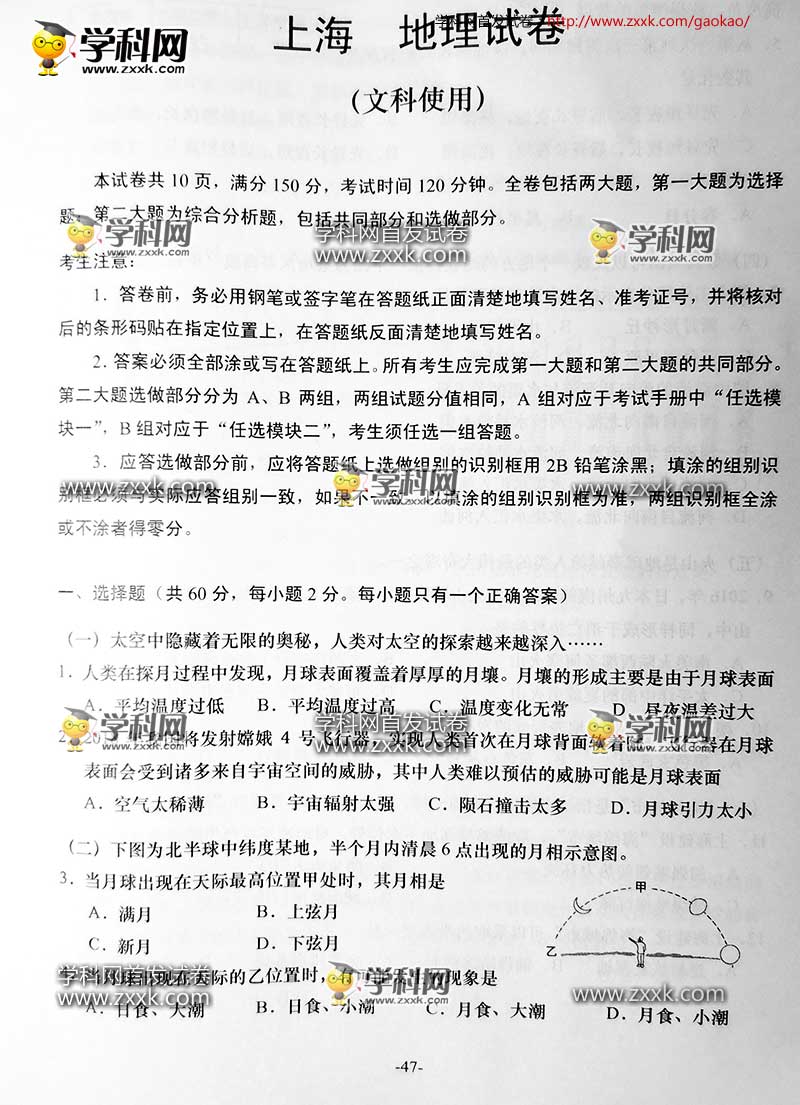 学科网首发试卷 http://www.zxxk.com/gaokao/
学科网
www.zxxk.com
上海 地理试卷
(文科使用)
本试卷共 10 页，满分 150 分，考试时间 120 分钟。全卷包括两大题，第一大题为选择
题；第二大题为综合分析题，包括共同部分和选做部分。
学科网
www.zxxk.com
学科网首发试卷
www.zxxk.com
学科网
www.zxxk.com
考生注意：
1．答卷前，务必用钢笔或签字笔在答题纸正面清楚地填写姓名、准考证号，并将核对
后的条形码贴在指定位置上，在答题纸反面清楚地填写姓名。
2．答案必须全部涂或写在答题纸上。所有考生应完成第一大题和第二大题的共同部分。
第二大题选做部分分为 A、B 两组，两组试题分值相同，A 组对应于考试手册中“任选模
块一”，B 组对应于“任选模块二”，考生须任选一组答题。
3．应答选做部分前，应将答题纸上选做组别的识别框用 2B 铅笔涂黑；填涂的组别识
别框必须与实际应答组别一致，如果不一致 填涂的组别识别框为准，两组识别框全涂
或不涂者得零分。
学科网首发试卷
www.zxxk.com
学科网
www.zxxk.com
学科网首发试卷
www.zxxk.com
一、选择题（共 60 分，每小题 2 分。每小题只有一个正确答案）
（一）太空中隐藏着无限的奥秘，人类对太空的探索越来越深入……
1．人类在探月过程中发现，月球表面覆盖着厚厚的月壤。月壤的形成主要是由于月球表面
A．平均温度过低 B．平均温度过高 C．温度变化无常 D．昼夜温差过大
学科网
www.zxxk.com
学科网首发试卷
www.zxxk.com
学科网
www.zxxk.com
2． 将发射嫦娥 4 号飞行器，实现人类首次在月球背面 着 器在月球
表面会受到诸多来自宇宙空间的威胁，其中人类难以预估的威胁可能是月球表面
A．空气太稀薄 B．宇宙辐射太强 C．陨石撞击太多 D．月球引力太小
（二）下图为北半球中纬度某地，半个月内清晨 6 点出现的月相示意图。
3．当月球出现在天际最高位置甲处时，其月相是
A．满月 B．上弦月
C．新月 D．下弦月
甲
乙
当月球出现在天际的乙位置时，有可 的现象是
A．日食、大潮 B．日食、小潮 C．月食、大潮 D．月食、小潮
学科网首发试卷
www.zxxk.com
学科网
www.zxxk.com
学科网首发试卷
www.zxxk.com
-47-